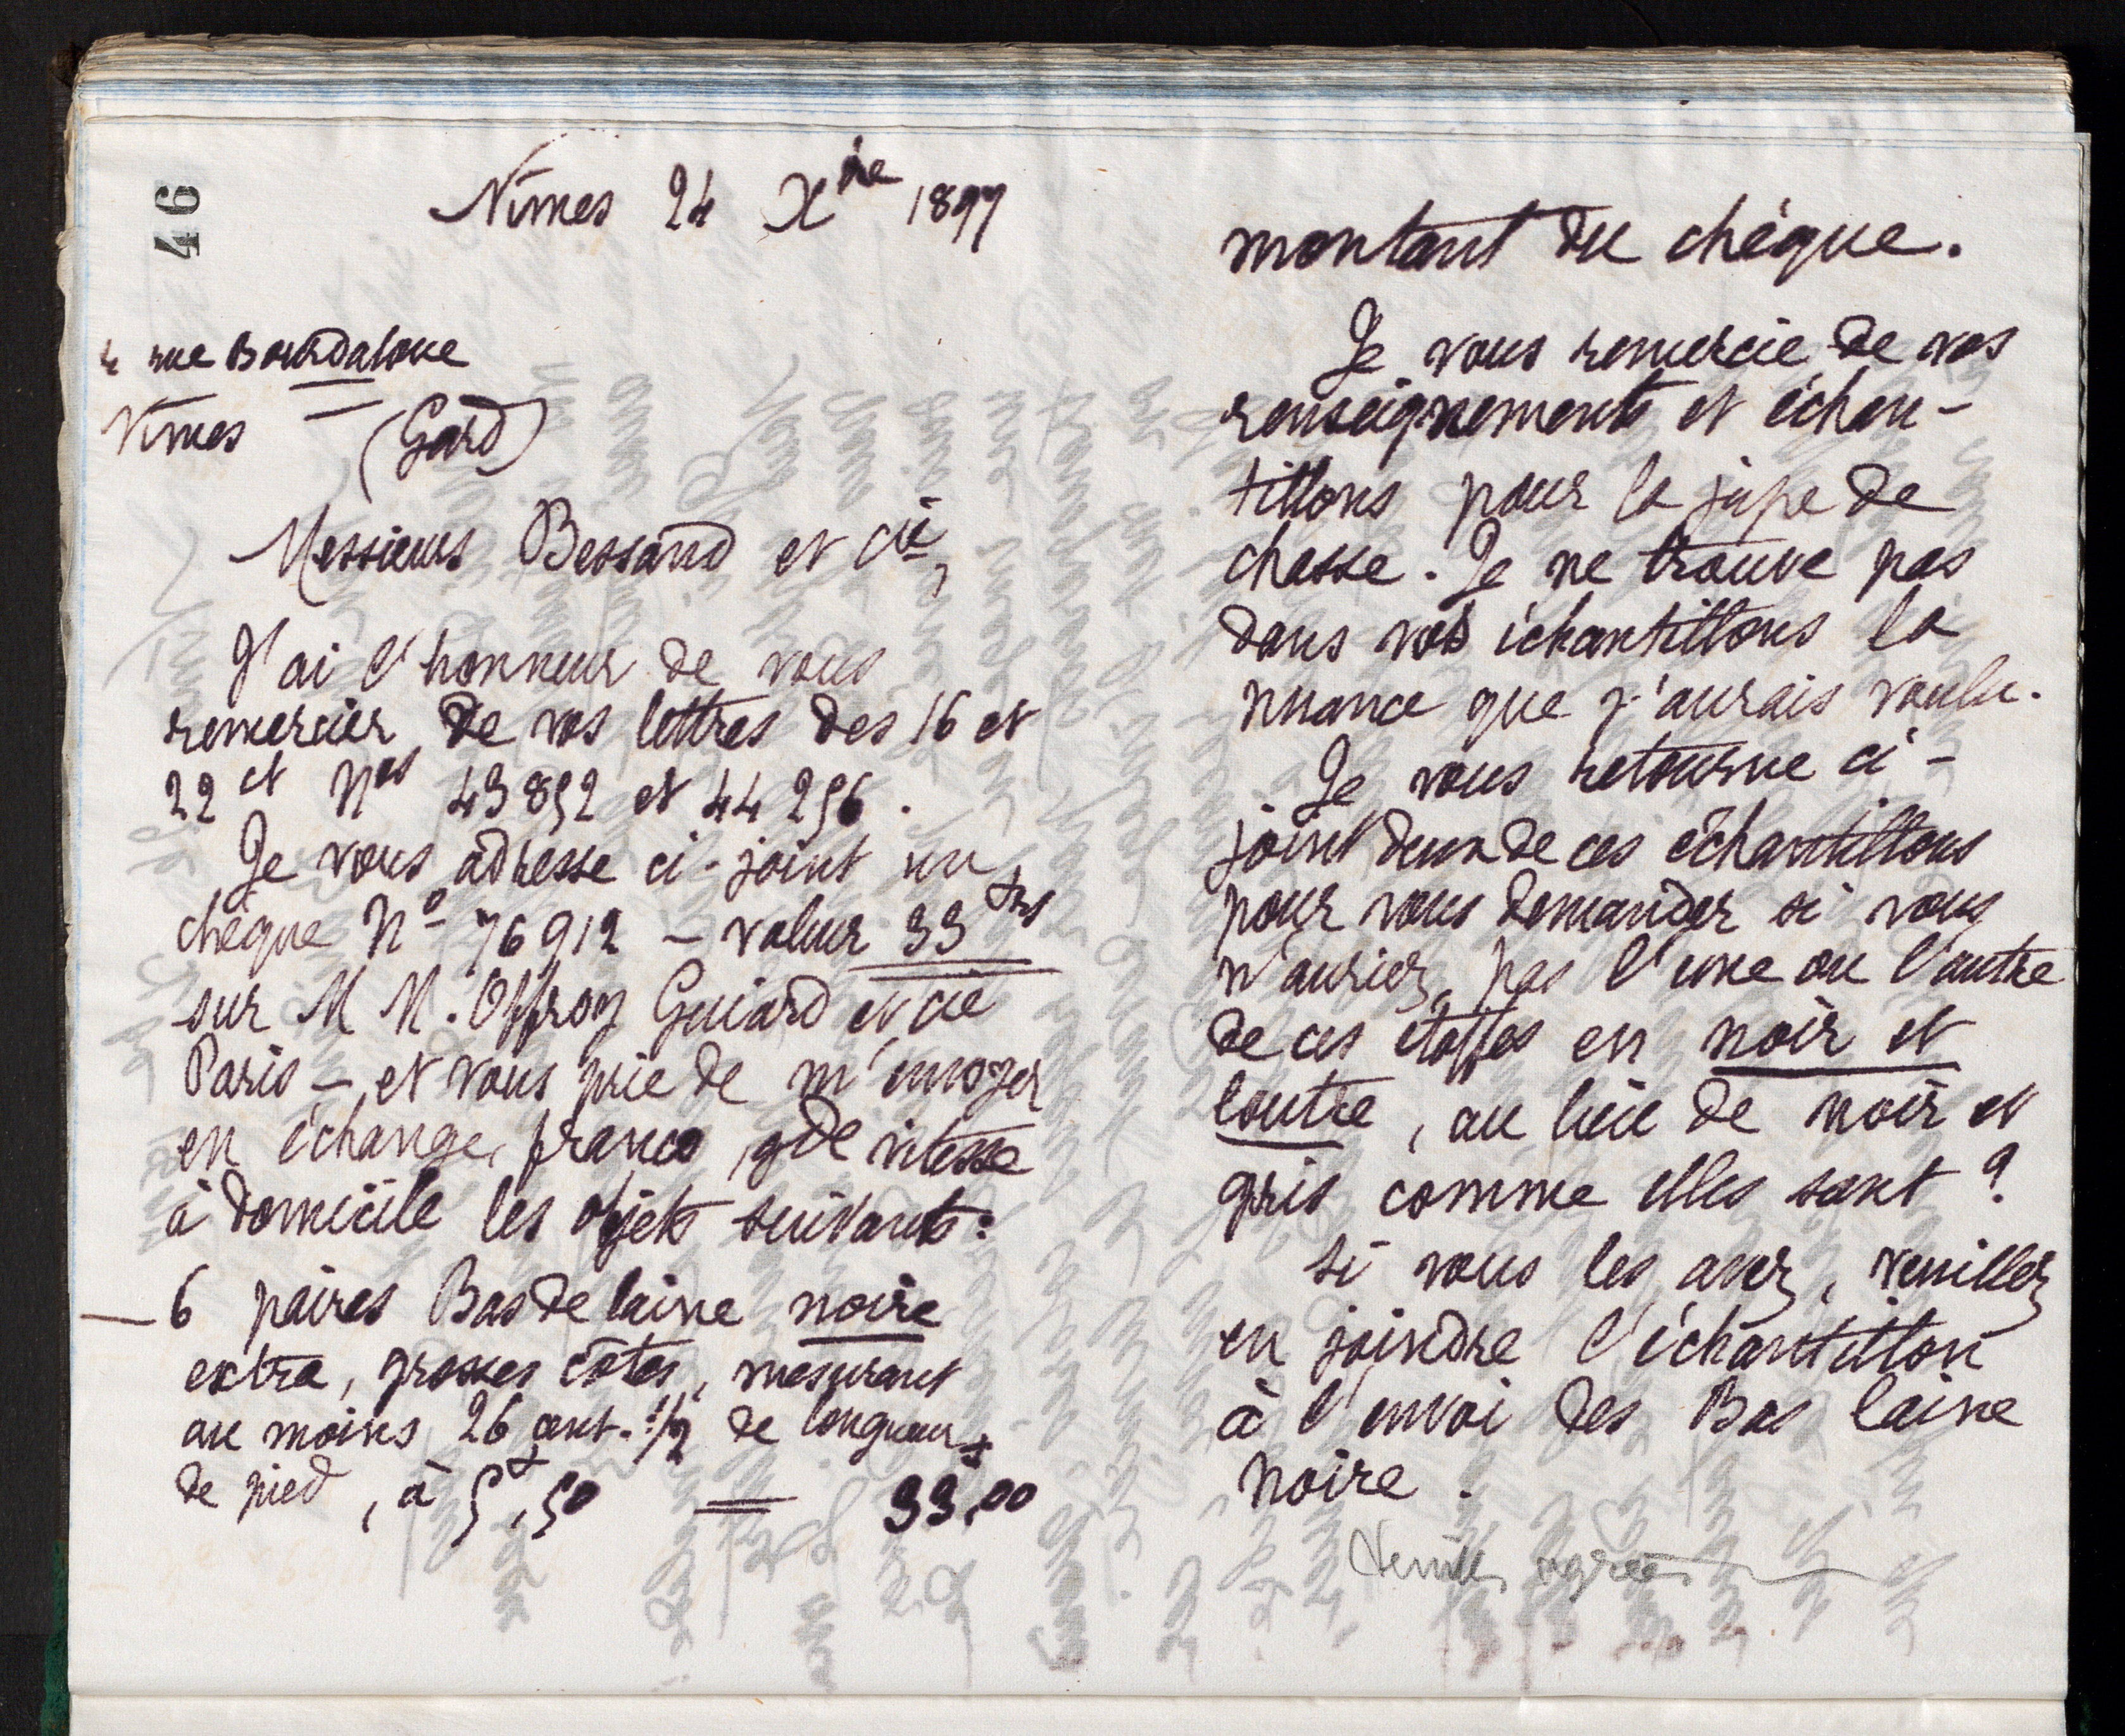 46
Nîmes 24 Xbre 1897
4 rue Bourdaloue
Nîmes (Gard)
Messieurs Bessand et Cie,
J'ai l'honneur de vous
remercier de vos lettres des 16 et
22 ct Nos 43852 et 44256.
Je vous adresse ci-joint un
chèque No 76912 – valeur 33 frs
sur M M. Offroy Guiard et cie
Paris – et vous prie de m'envoyer
en échange, franco, gde vitesse
à domicile les objets suivants :
– 6 paires Bas de laine noire
extra, grosses côtes, mesurant
au moins 26 cent. 1/2 de longueur
de pied, à 5f,50 = 33f,00
montant du chèque.
Je vous remercie de vos
renseignements et échan-
tillons pour la jupe de
chasse. Je ne trouve pas
dans vos échantillons la
nuance que j'aurais voulu.
Je vous retourne ci-
joint deux de ces échantillons
pour vous demander si vous
n'auriez pas l'une ou l'autre
de ces étoffes en noir et
loutre, au lieu de noir et
gris comme elles sont ?
Si vous les avez, veuillez
en joindre l'échantillon
à l'envoi des Bas laine
noire.
Veuillez agréer